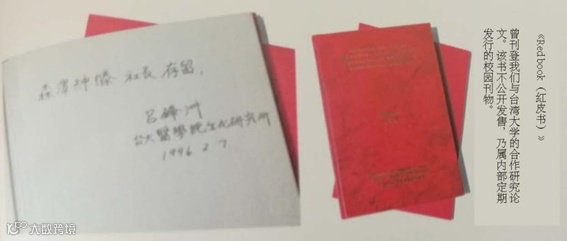 森澤紳勝 社長 存留.
呂鋒洲
台大醫學院生化研究所
1996 2 7
《Redbook（紅皮书）》
曾刊登我们与台湾大学的合作研究论
文。该书不公开发售，乃属内部定期
发行的校园刊物。
大威跨境